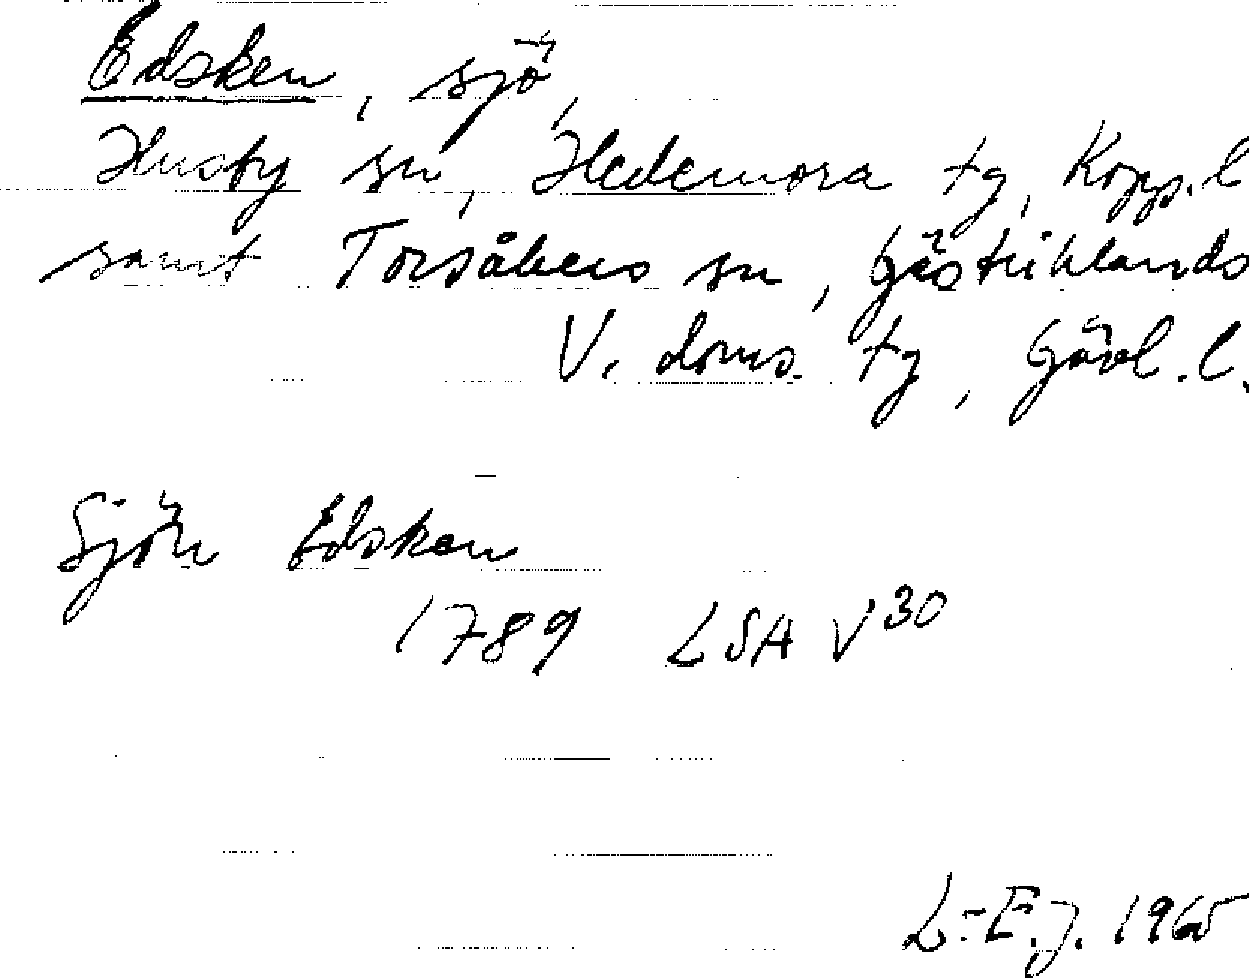 Edsken, sjö,
Husby sn, Hedemora tg, Kopp. l
samt Torsåkers sn, Gästriklands
V. doms. tg, Gävl. l.
Sjön Edsken
1789 LSA V30
L-E.J. 1965